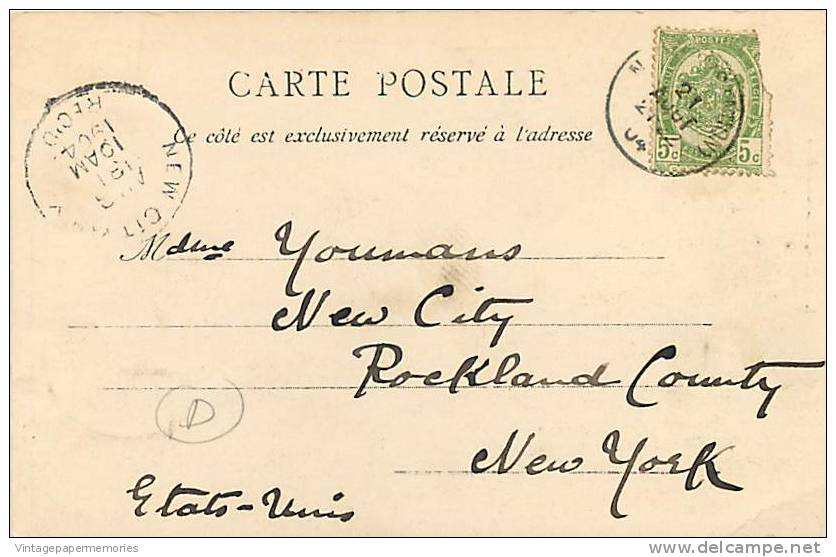 CARTE POSTALE
Ce côté est exclusivement réservé à l'adresse
POSTES
5c 5c
21
AOUT
21
04
NEW CITY
REC'D.
1904
10AM
Mdme Youmans
New City
Rockland County
New York
Etats-Unis
D
Vintagepapermemories
delcampe.net